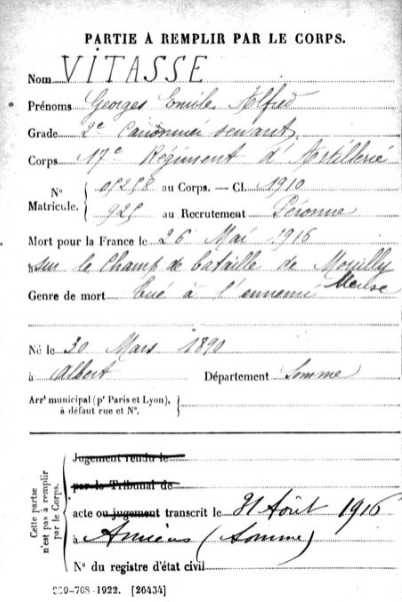 PARTIE À REMPLIR PAR LE CORPS.
Nom VITASSE
Prénoms Georges Emile Alfred
Grade 2e Canonnier servant
Corps 17e Régiment d'Artillerie
No Matricule. { 05258 au Corps. — Cl. 1910
925 au Recrutement Péronne
Mort pour la France le 26 Mai 1916
sur le Champ de bataille de Mouilly Meuse
Genre de mort Tué à l'ennemi
Né le 30 Mars 1890
à Albert Département Somme
Arrt municipal (pr Paris et Lyon), à défaut rue et No.
Cette partie n'est pas à remplir par le Corps.
Jugement rendu le
par le Tribunal de
acte ou jugement transcrit le 31 Août 1916
à Amiens (Somme)
No du registre d'état civil
-708-1922. [26434]